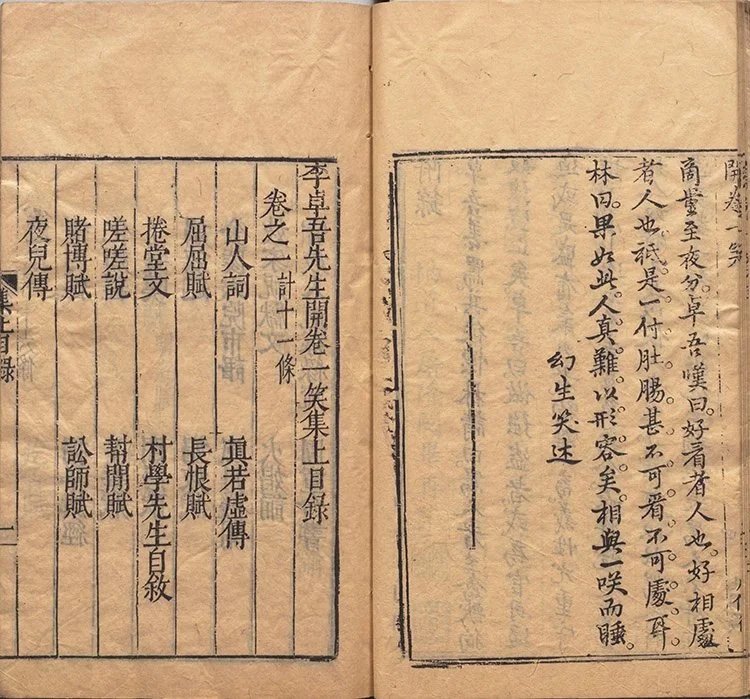 開卷一笑
商量至夜分。卓吾嘆曰。好看者人也。好相處
者人也。祇是一付肚腸。甚不可看。不可處。耳
林果如此。人真難以形容矣。相與一咲而睡。
幻生笑述
李卓吾先生開卷一笑集上目錄
卷之一 計十一條
山人詞 眞若虛傳
屈屈賦 長恨賦
捲堂文 村學先生自敘
嗟嗟說 幇閒賦
賭博賦 訟師賦
夜兒傳
集上目錄 一